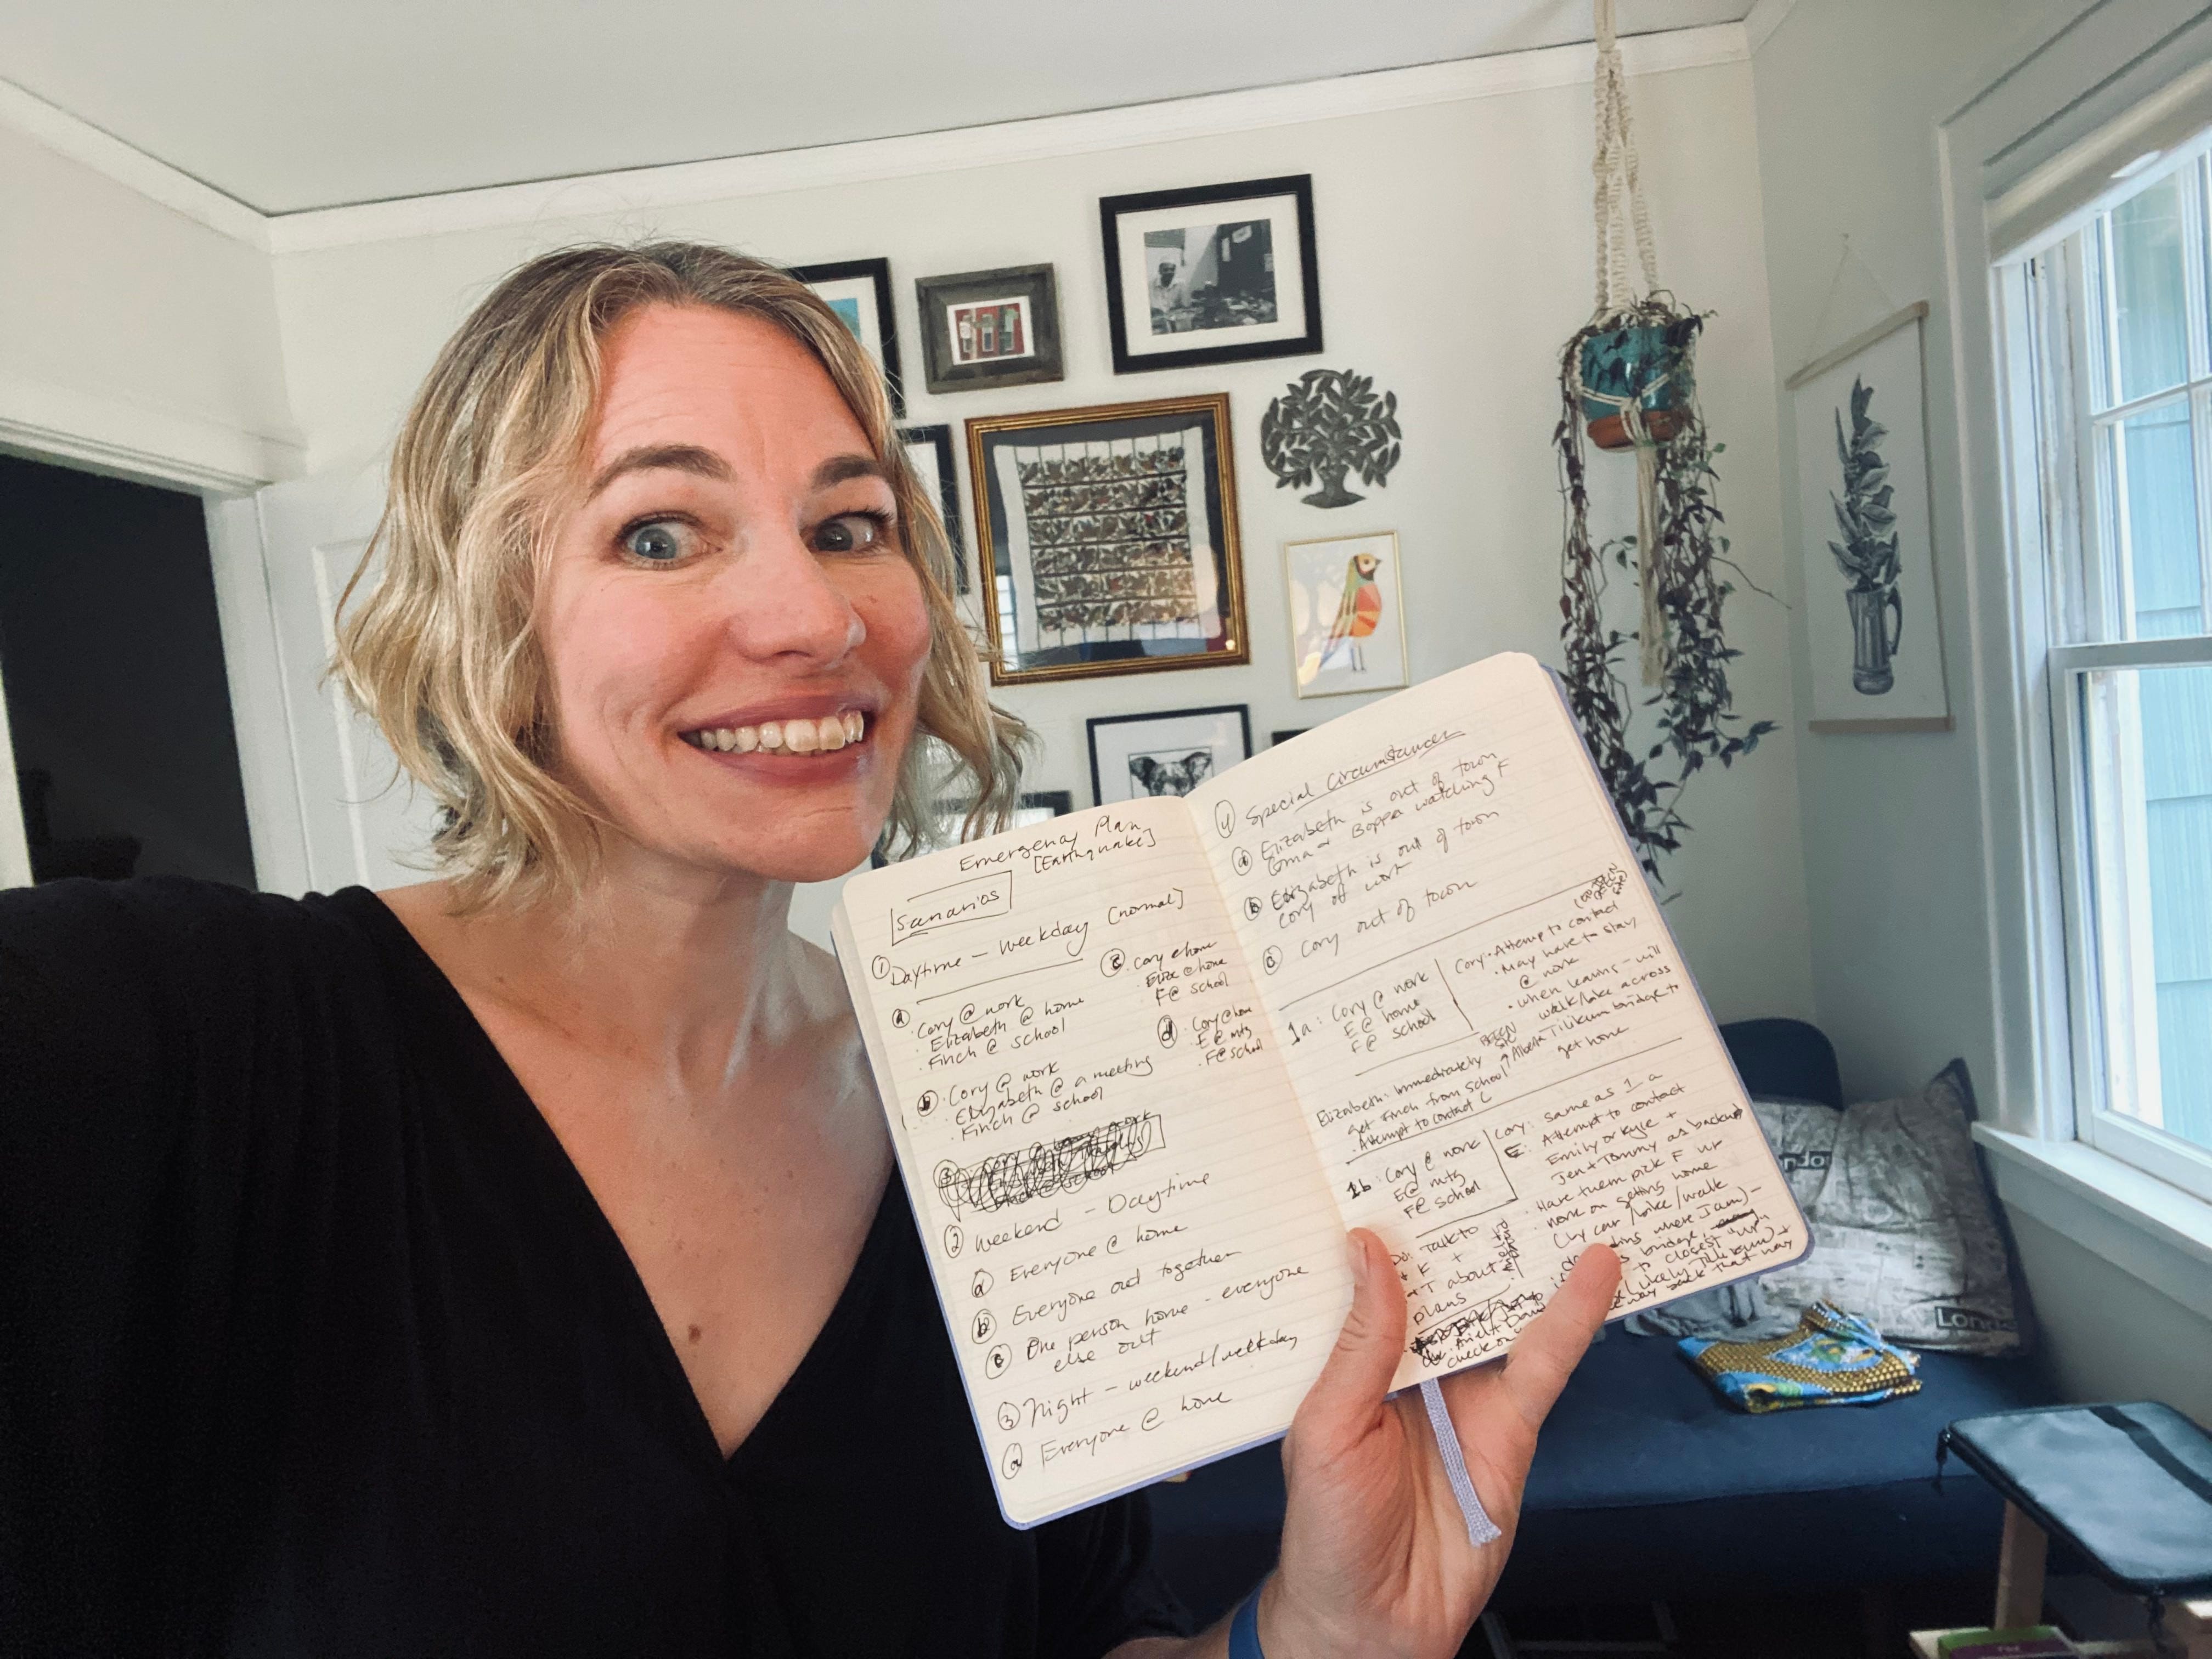 Emergency Plan
[Earthquake]
Scenarios
① Daytime - Weekday [normal]
ⓐ · Cory @ work
· Elizabeth @ home
· Finch @ school
ⓑ · Cory @ work
· Elizabeth @ a meeting
· Finch @ school
ⓒ · Cory @ home
· Eliza @ home
· F @ school
ⓓ · Cory @ home
· E @ mtg
· F @ school
② Weekend - Daytime
ⓐ Everyone @ home
ⓑ Everyone out together
ⓒ One person home - everyone
else out
③ Night - weekend/weekday
ⓐ Everyone @ home
④ Special Circumstances
ⓐ Elizabeth is out of town
Boppa watching F
ⓑ Elizabeth is out of town
Cory off work
ⓒ Cory out of town
1a: Cory @ work
E @ home
F @ school
Cory: · Attempt to contact
· May have to stay
@ work
· when leaving - will
walk/bike across
Tilikum bridge to
get home
Elizabeth: Immediately
get Finch from school
· Attempt to contact C
1b: Cory @ work
E @ mtg
F @ school
Cory: same as 1a
E: Attempt to contact
Emily or Kyle +
Jen + Tommy as backup
· Have them pick F up
· work on getting home
(by car/bike/walk
where I am) -
bridge,
to closest "up"
(likely Tilikum) +
back that way
Talk to
+ K +
+ T about
plans
London